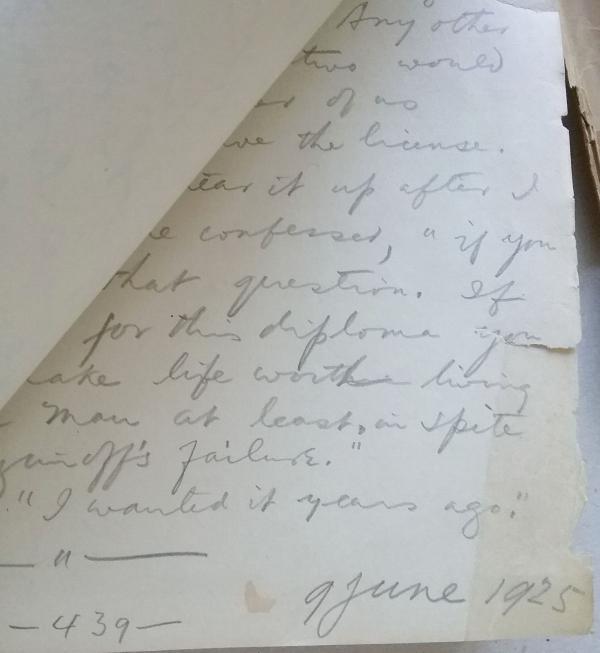 Any other
two would
of us
the license.
tear it up after I
confessed, "if you
that question. If
for this diploma you
life worth living
man at least, in spite
failure."
"I wanted it years ago."
— " —
— 439 —
9 June 1925